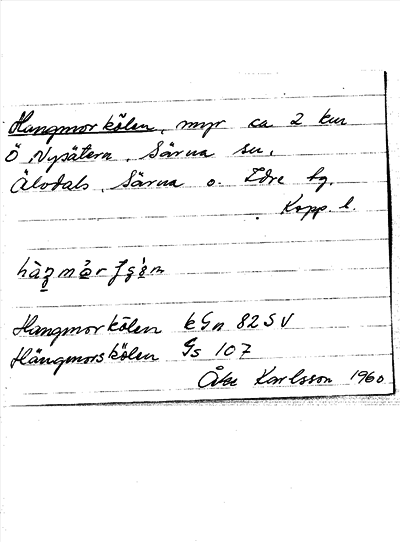 Hangmorkölen, myr ca 2 km
Ö Nysätern, Särna sn,
Älvdals, Särna o. Idre tg.
Kopp. l.
Hangmorkölen kGn 82SV
Hängmorskölen Gs 107
Åke Karlsson 1960